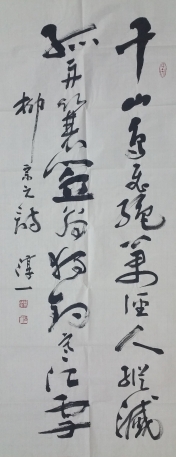 千山鳥飛絕萬徑人蹤滅
孤舟簑笠翁獨釣寒江雪
柳宗元詩 淳一